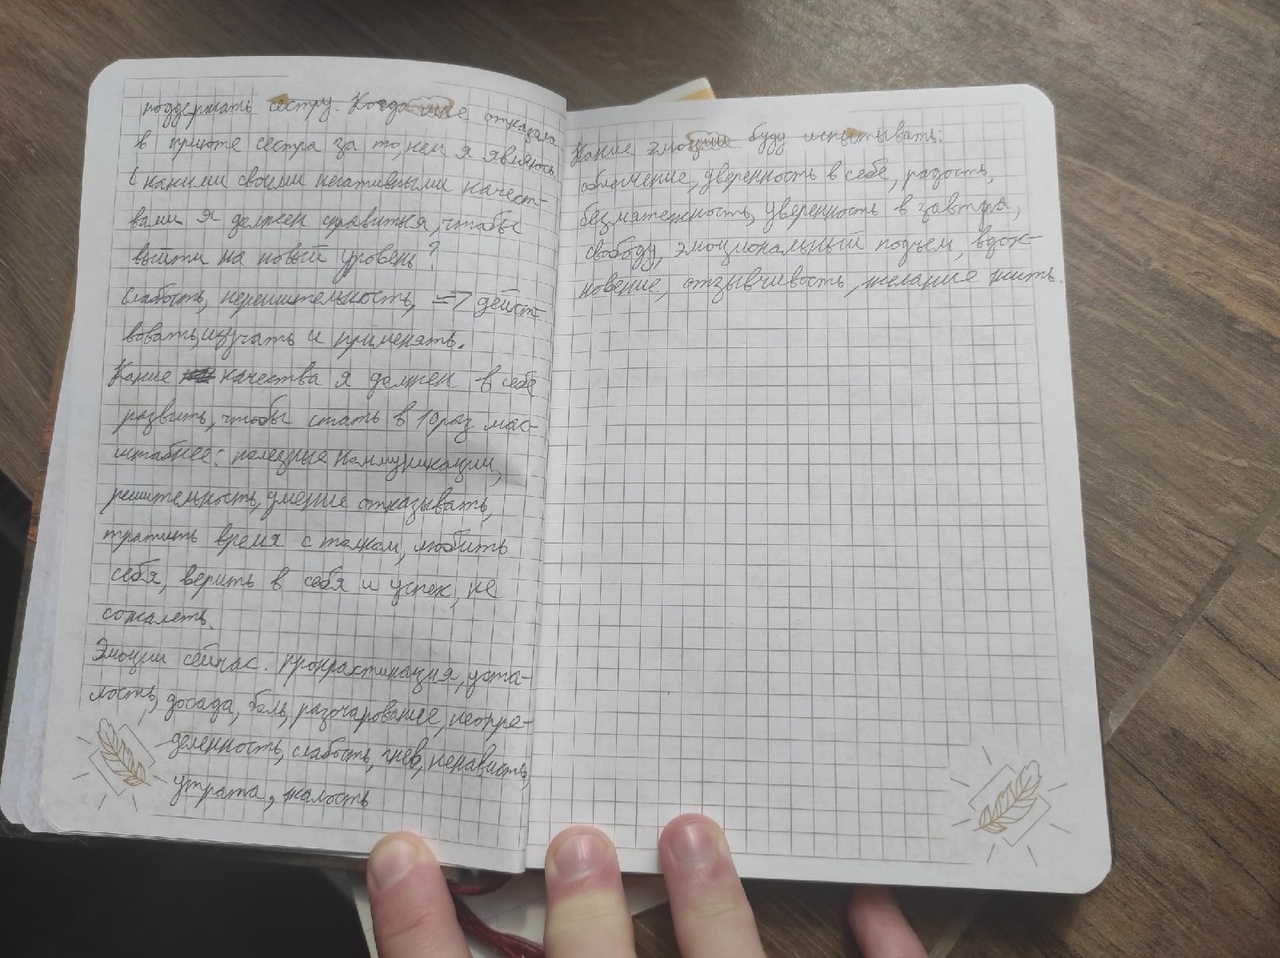 поддержать сестру. Когда мне отказала
в приюте сестра за то, кем я являюсь
С какими своими негативными качест-
вами я должен справиться, чтобы
выйти на новый уровень?
Слабость, нерешительность, => дейст-
вовать, изучать и применять.
Какие качества я должен в себе
развить, чтобы стать в 10 раз мас-
штабнее: полезные коммуникации,
решительность, умение отказывать,
тратить время с толком, любить
себя, верить в себя и успех, не
сожалеть.
Эмоции сейчас: прокрастинация, уста-
лость, досада, боль, разочарование, неопре-
деленность, слабость, гнев, ненависть,
утрата, жалость
Какие эмоции буду испытывать:
облегчение, уверенность в себе, радость,
безмятежность, уверенность в завтра,
свободу, эмоциональный подъем, вдох-
новение, отзывчивость, желание жить.